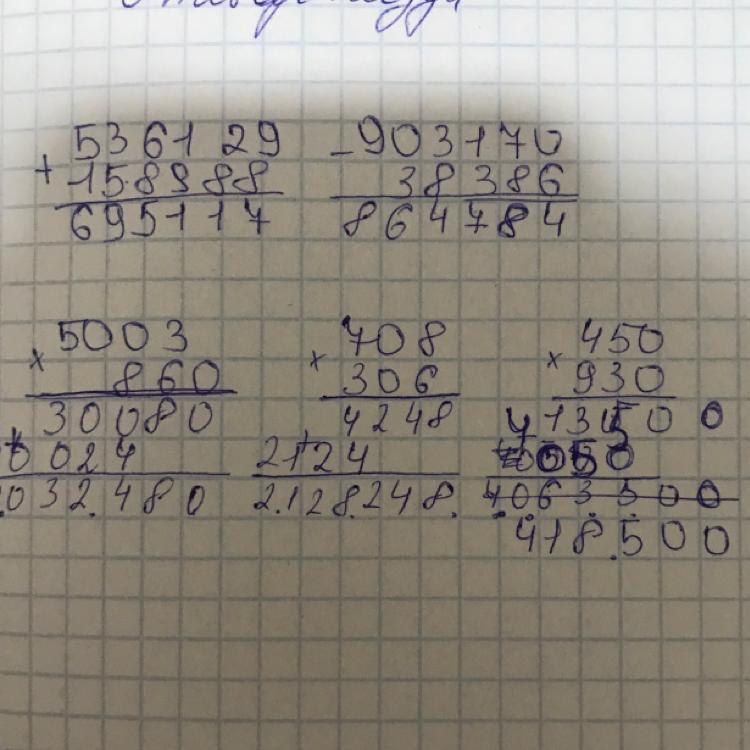 536129
+
158988
695117
-903170
38386
864784
5003
×
860
30080
0024
032.480
708
×
306
4248
2124
2.128.248.
450
×
930
13500
4063500
418.500